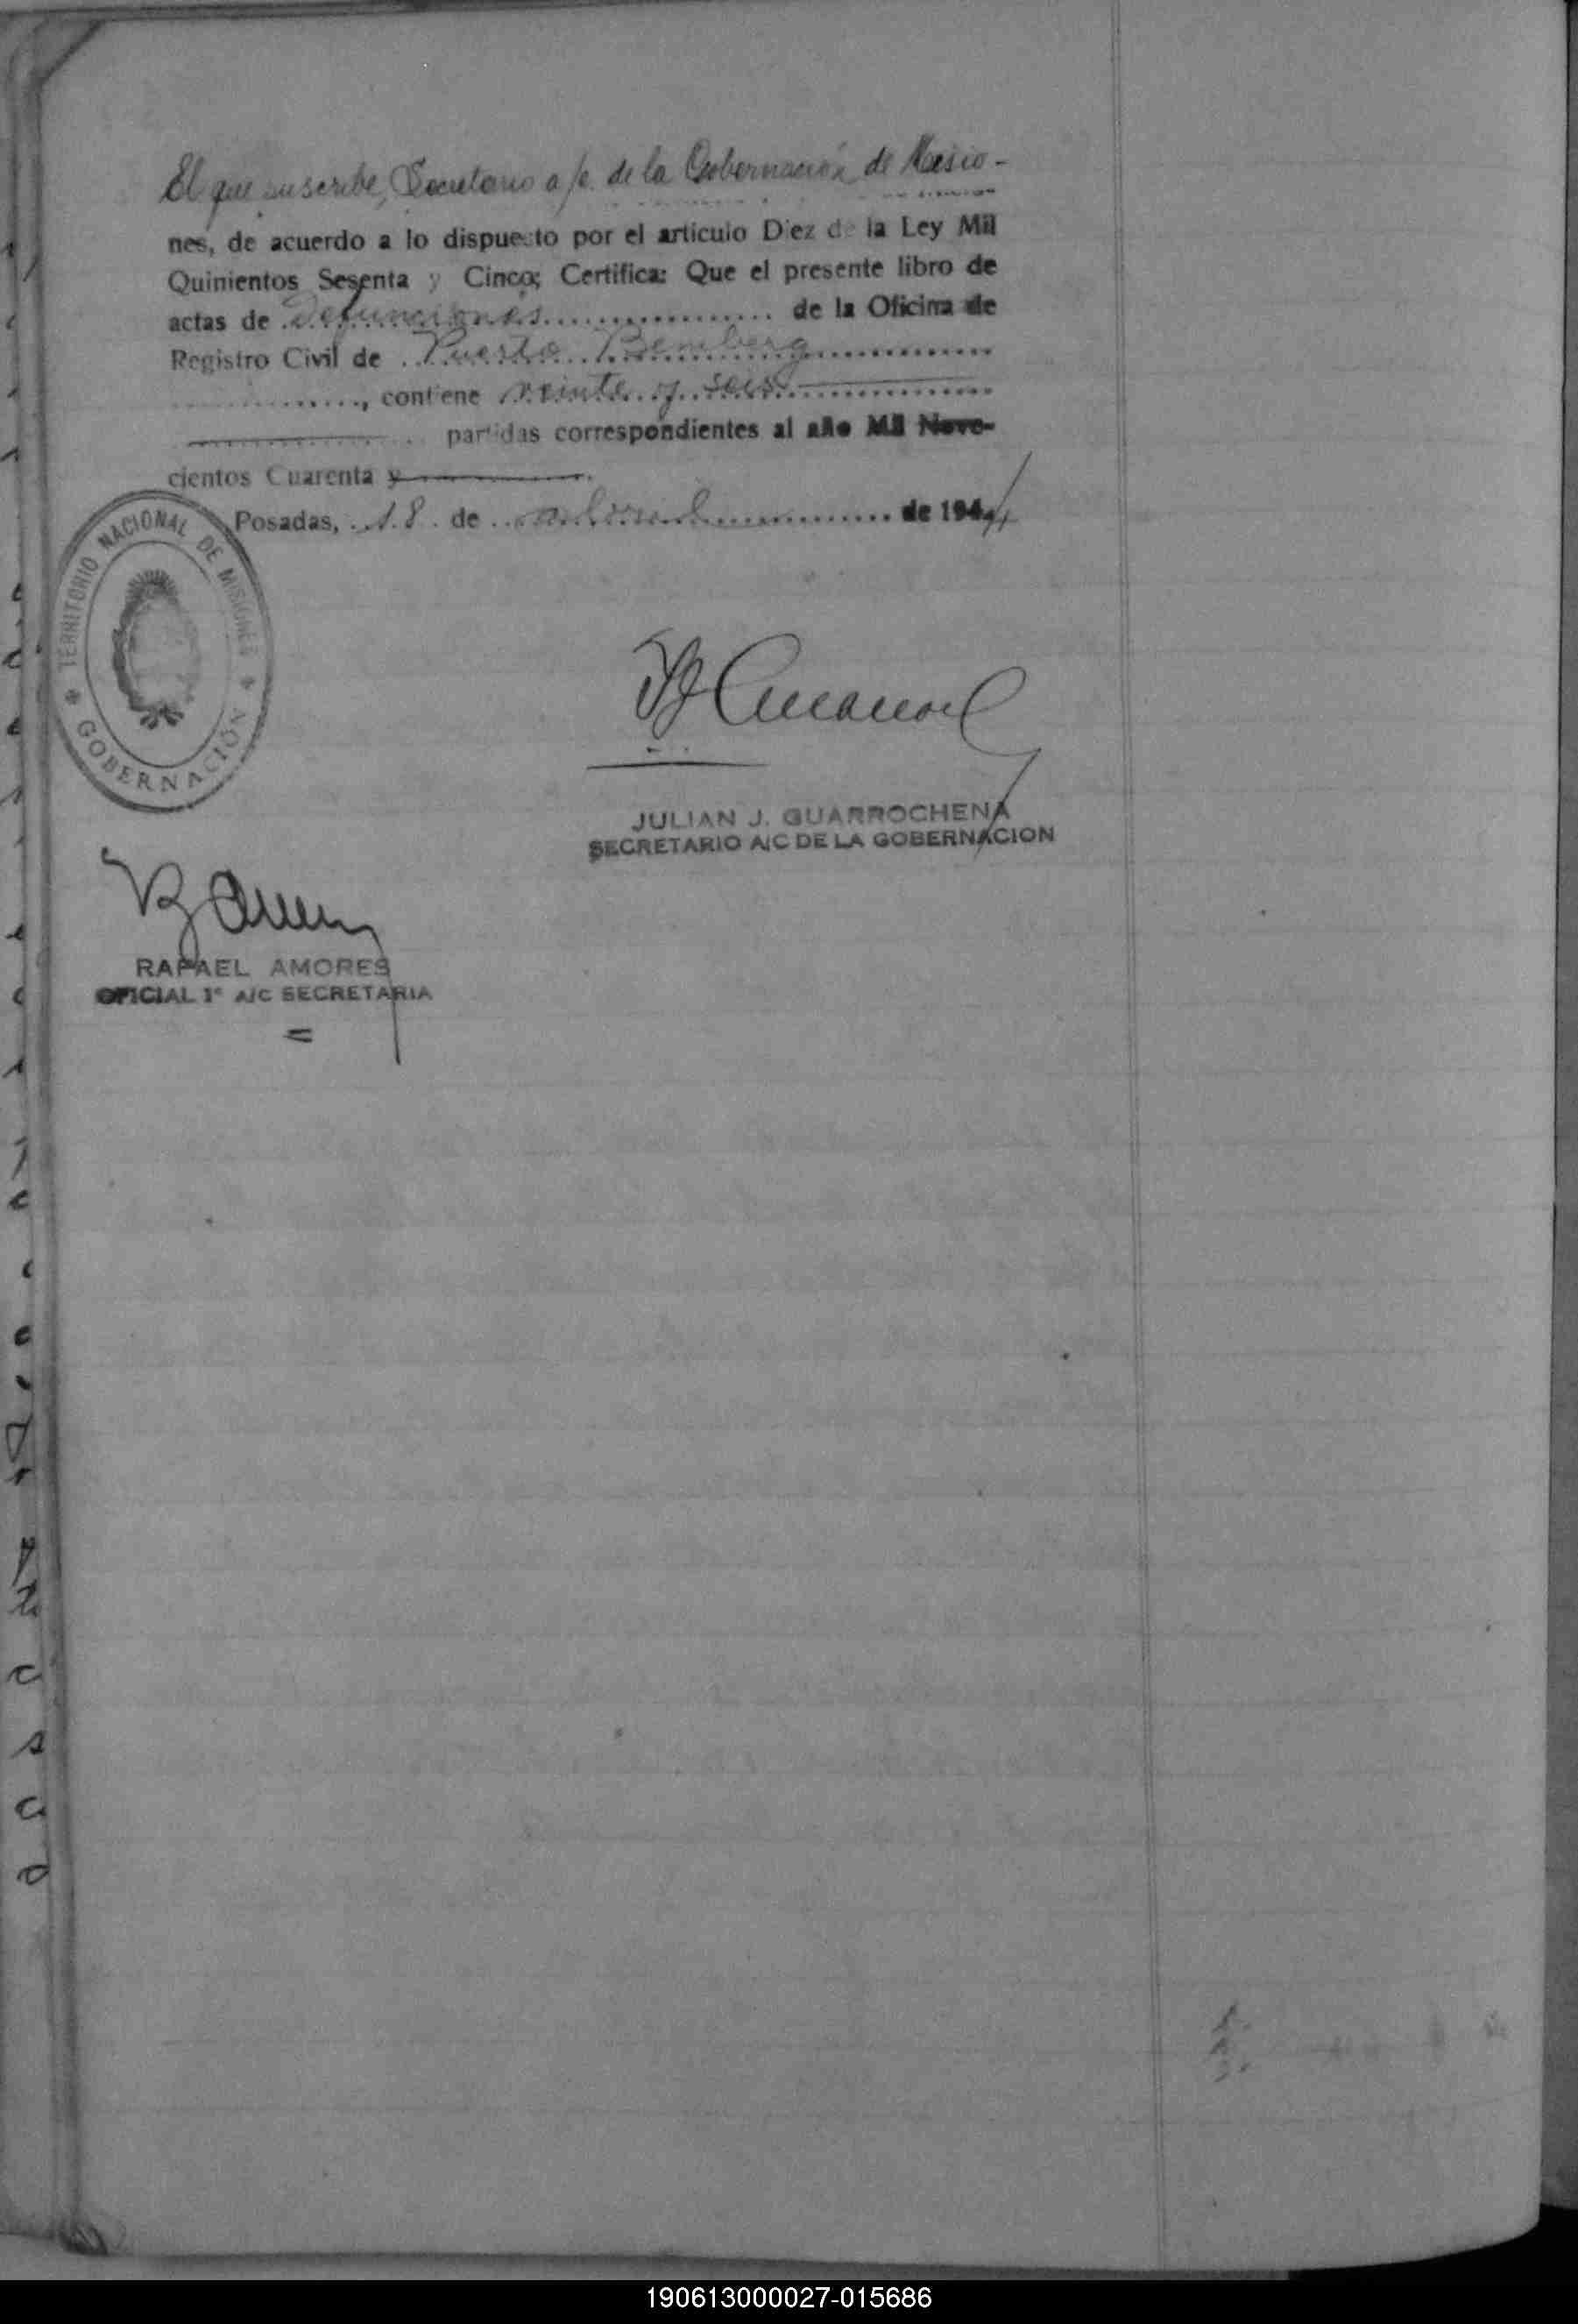 El que suscribe, Secretario a/c. de la Gobernación de Misio-
nes, de acuerdo a lo dispuesto por el artículo Diez de la Ley Mil
Quinientos Sesenta y Cinco; Certifica: Que el presente libro de
actas de defunciones de la Oficina de
Registro Civil de Puerto Bemberg
, contiene veinte y seis
partidas correspondientes al año Mil Nove-
cientos Cuarenta y
Posadas, 18 de de 1944
TERRITORIO NACIONAL DE MISIONES
GOBERNACIÓN
JULIAN J. GUARROCHENA
SECRETARIO A/C DE LA GOBERNACION
RAFAEL AMORES
OFICIAL 1º A/C SECRETARIA
190613000027-015686